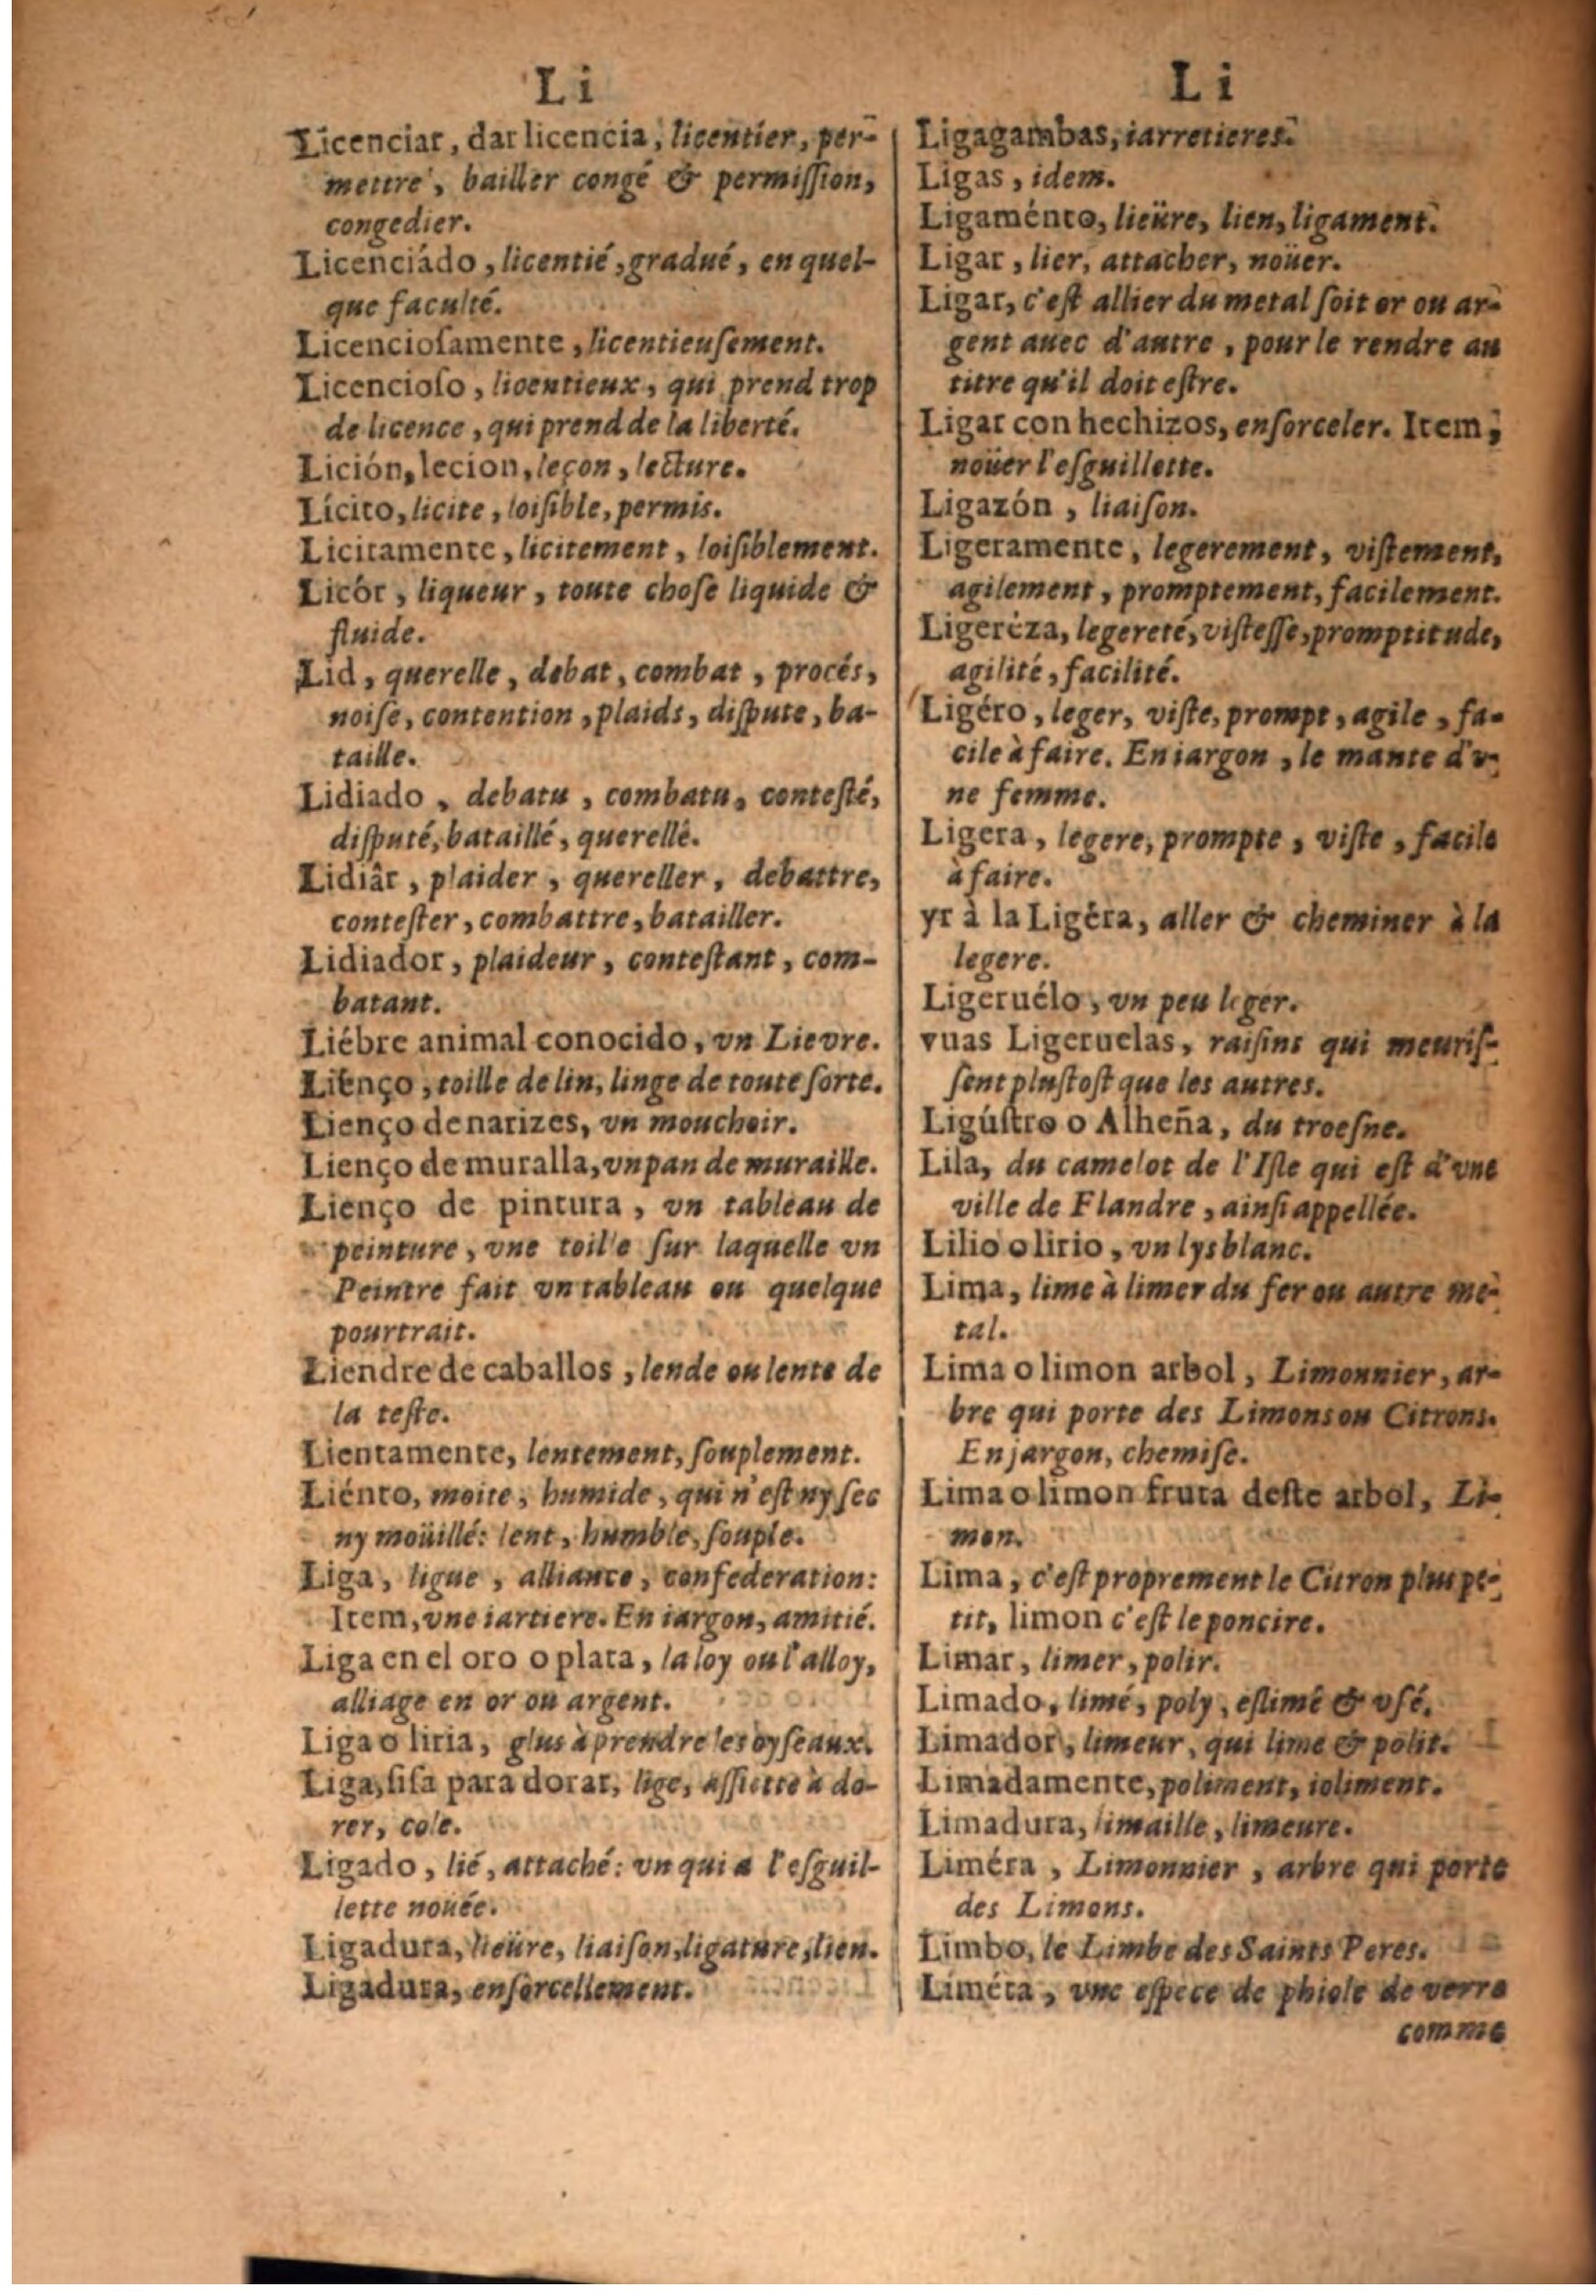 Li
Licenciar, dar licencia, licentier, per-
mettre, bailler congé & permiſſion,
congedier.
Licenciádo, licentié, gradué, en quel-
que faculté.
Licencioſamente, licentieuſement.
Licencioſo, licentieux, qui prend trop
de licence, qui prend de la liberté.
Lición, lecion, leçon, lecture.
Lícito, licite, loiſible, permis.
Licitamente, licitement, loiſiblement.
Licór, liqueur, toute choſe liquide &
fluide.
Lid, querelle, debat, combat, procés,
noiſe, contention, plaids, diſpute, ba-
taille.
Lidiado, debatu, combatu, conteſté,
diſputé, bataillé, querellé.
Lidiâr, plaider, quereller, debattre,
conteſter, combattre, batailler.
Lidiador, plaideur, conteſtant, com-
batant.
Liébre animal conocido, vn Lievre.
Liénço, toille de lin, linge de toute ſorte.
Lienço de narizes, vn mouchoir.
Lienço de muralla, vn pan de muraille.
Lienço de pintura, vn tableau de
peinture, vne toille ſur laquelle vn
Peintre fait vn tableau ou quelque
pourtrait.
Liendre de caballos, lende ou lente de
la teſte.
Lientamente, lentement, ſouplement.
Liénto, moite, humide, qui n'eſt ny ſec
ny moüillé: lent, humble, ſouple.
Liga, ligue, alliance, confederation:
Item, vne iartiere. En iargon, amitié.
Liga en el oro o plata, la loy ou l'alloy,
alliage en or ou argent.
Liga o liria, glus à prendre les oyſeaux.
Liga, ſiſa para dorar, lige, aſſiette à do-
rer, cole.
Ligado, lié, attaché: vn qui a l'eſguil-
lette noüée.
Ligadura, lieüre, liaiſon, ligature, lien.
Ligadura, enſorcellement.
Li
Ligagambas, iarretieres.
Ligas, idem.
Ligaménto, lieüre, lien, ligament.
Ligar, lier, attacher, noüer.
Ligar, c'eſt allier du metal ſoit or ou ar-
gent auec d'autre, pour le rendre au
titre qu'il doit eſtre.
Ligar con hechizos, enſorceler. Item,
noüer l'eſguillette.
Ligazón, liaiſon.
Ligeramente, legerement, viſtement,
agilement, promptement, facilement.
Ligeréza, legereté, viſteſſe, promptitude,
agilité, facilité.
Ligéro, leger, viſte, prompt, agile, fa-
cile à faire. En iargon, le mante d'v-
ne femme.
Ligera, legere, prompte, viſte, facile
à faire.
yr à la Ligéra, aller & cheminer à la
legere.
Ligeruélo, vn peu leger.
vuas Ligeruelas, raiſins qui meuriſ-
ſent pluſtoſt que les autres.
Ligúſtro o Alheña, du troeſne.
Lila, du camelot de l'Iſle qui eſt d'vne
ville de Flandre, ainſi appellée.
Lilio o lirio, vn lys blanc.
Lima, lime à limer du fer ou autre me-
tal.
Lima o limon arbol, Limonnier, ar-
bre qui porte des Limons ou Citrons.
En jargon, chemiſe.
Lima o limon fruta deſte arbol, Li-
mon.
Lima, c'eſt proprement le Citron plus pe-
tit, limon c'eſt le poncire.
Limar, limer, polir.
Limado, limé, poly, eſlimé & vſé.
Limador, limeur, qui lime & polit.
Limadamente, poliment, ioliment.
Limadura, limaille, limeure.
Liméra, Limonnier, arbre qui porte
des Limons.
Limbo, le Limbe des Saints Peres.
Liméta, vne eſpece de phiole de verre
comme